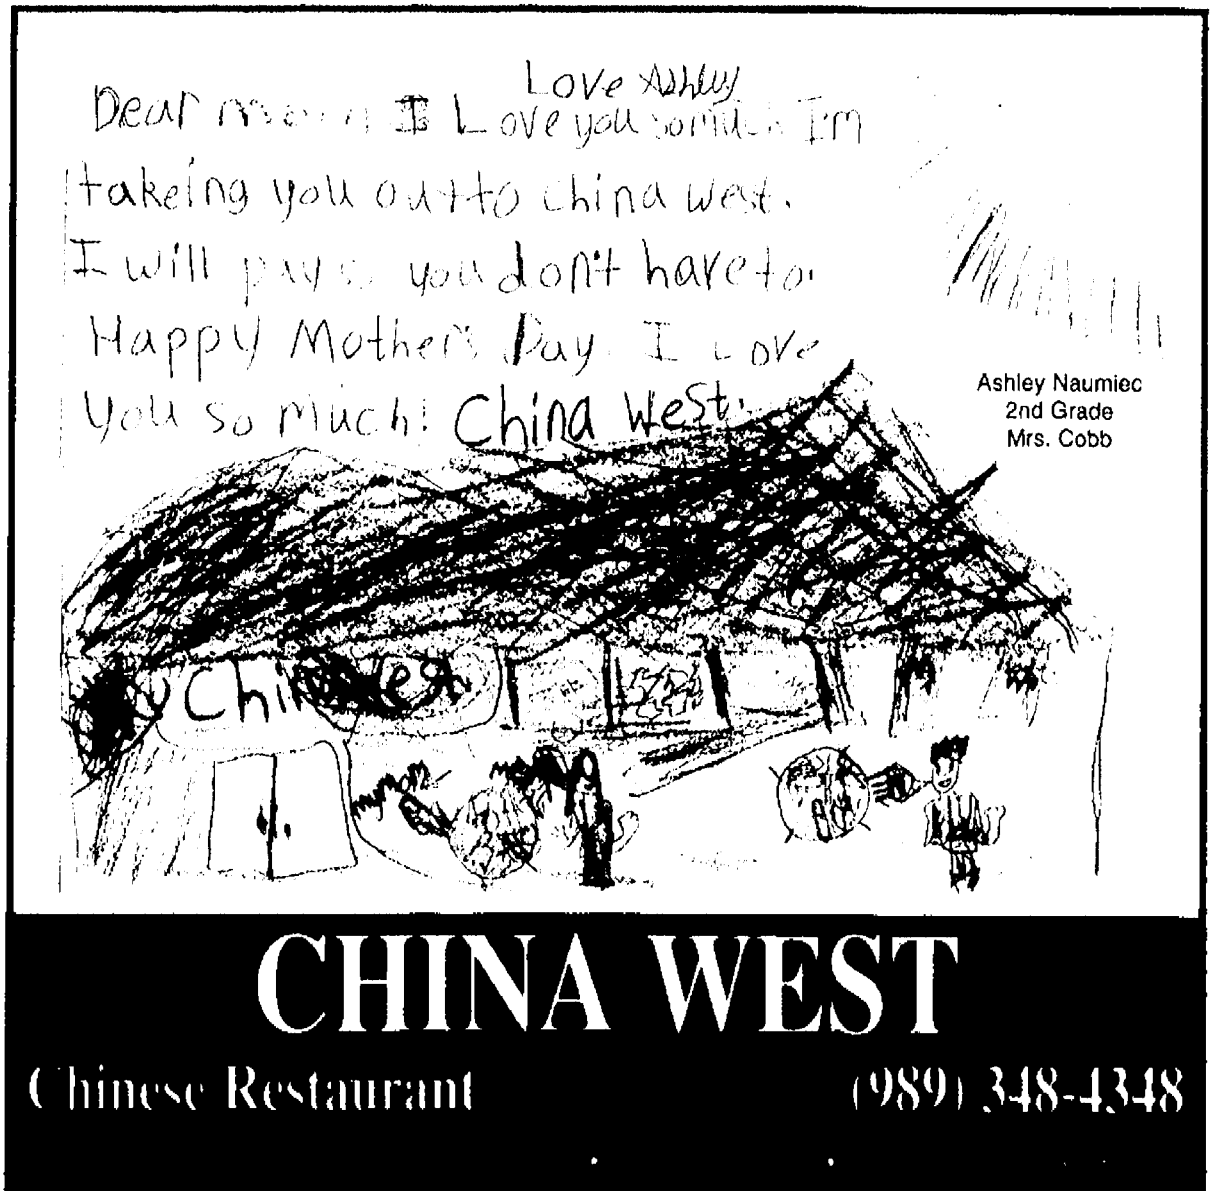 Love Ashley
Dear mom I Love you so much I'm
takeing you out to china west.
I will pay so you don't have to.
Happy Mother's Day. I Love
you so much! China West.
Ashley Naumiec
2nd Grade
Mrs. Cobb
my mom
CHINA WEST
Chinese Restaurant
(989) 348-4348